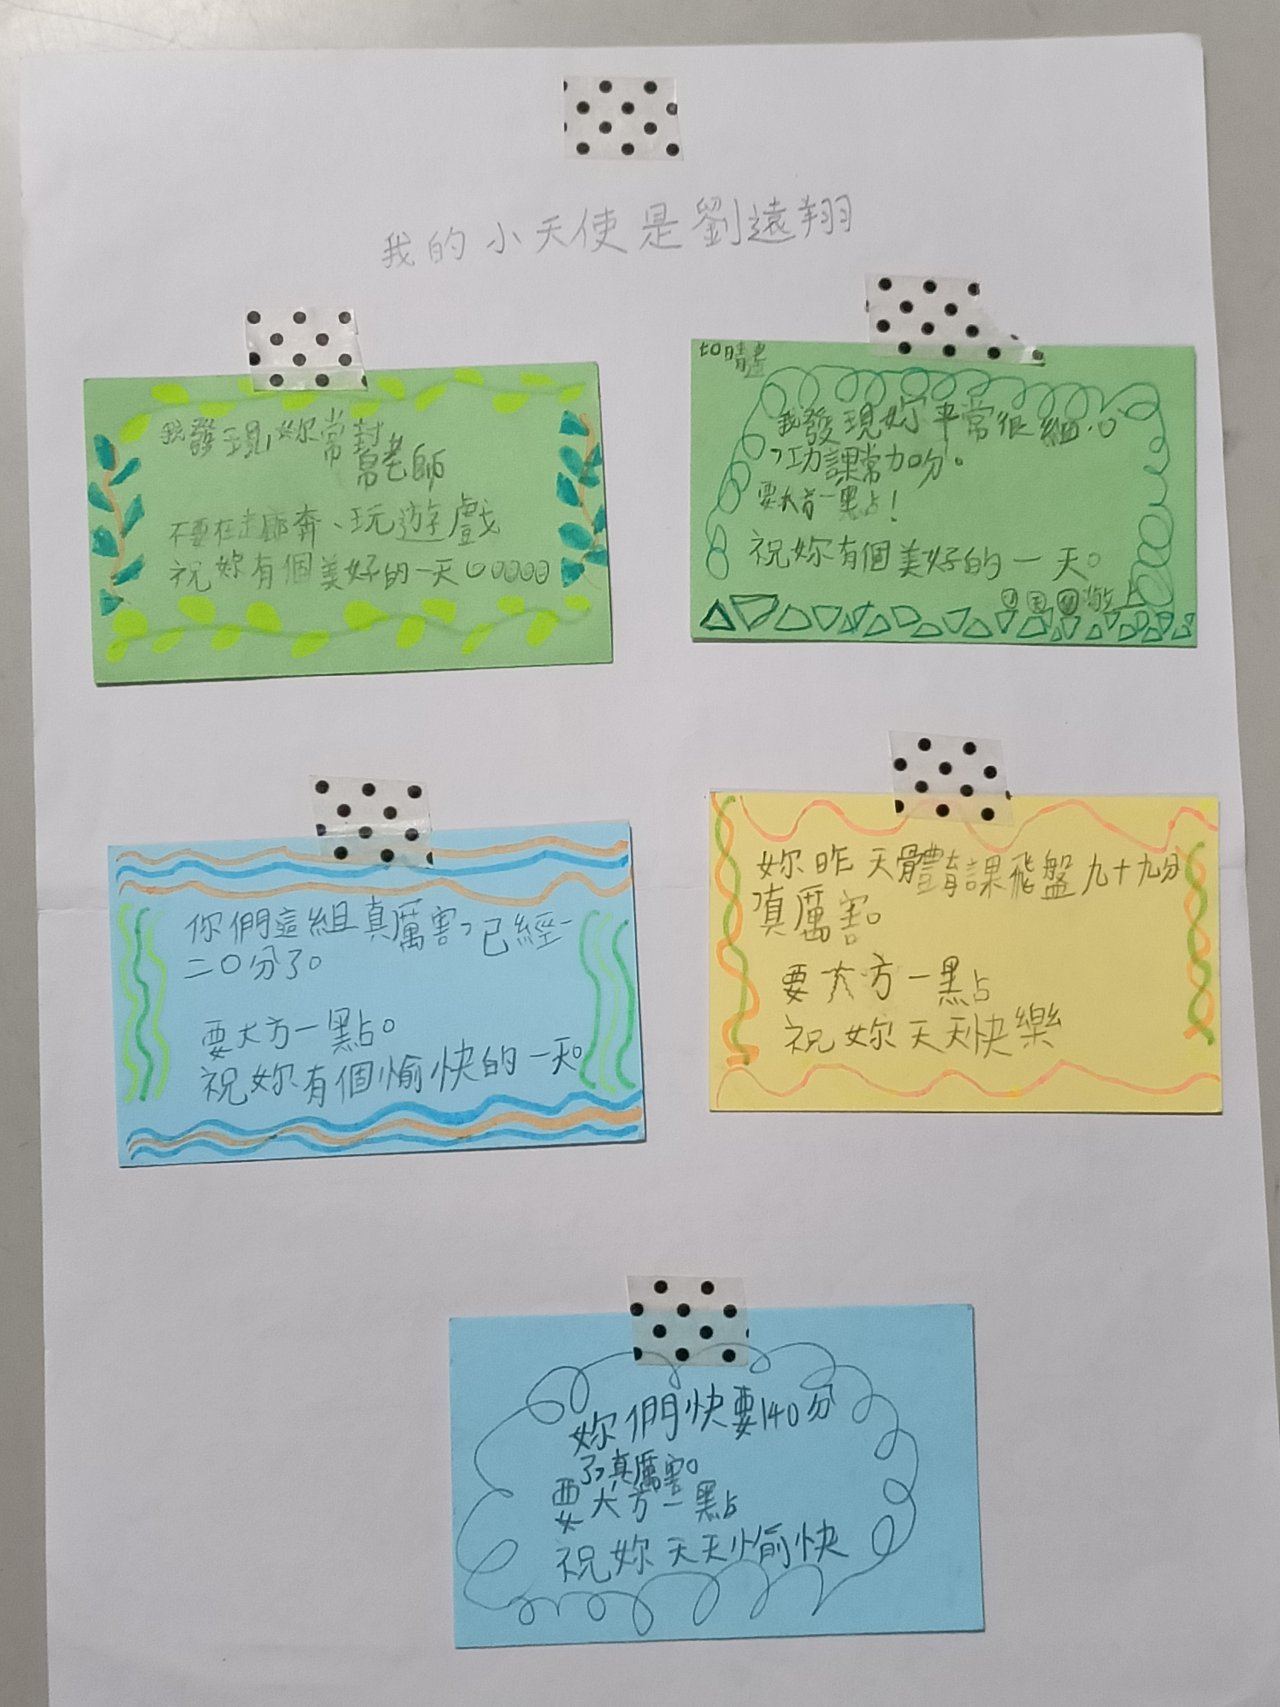 我的小天使是劉遠翔
我發現妳常
幫老師
不要在走廊奔、玩遊戲
祝妳有個美好的一天
我發現妳平常很細心
,功課常加分。
要大方一點!
祝妳有個美好的一天。
小天使敬上
你們這組真厲害,已經一
二〇分了。
要大方一點。
祝妳有個愉快的一天。
妳昨天體育課飛盤九十九分
,真厲害。
要大方一點
祝妳天天快樂
妳們快要140分
了,真厲害。
要大方一點
祝妳天天愉快